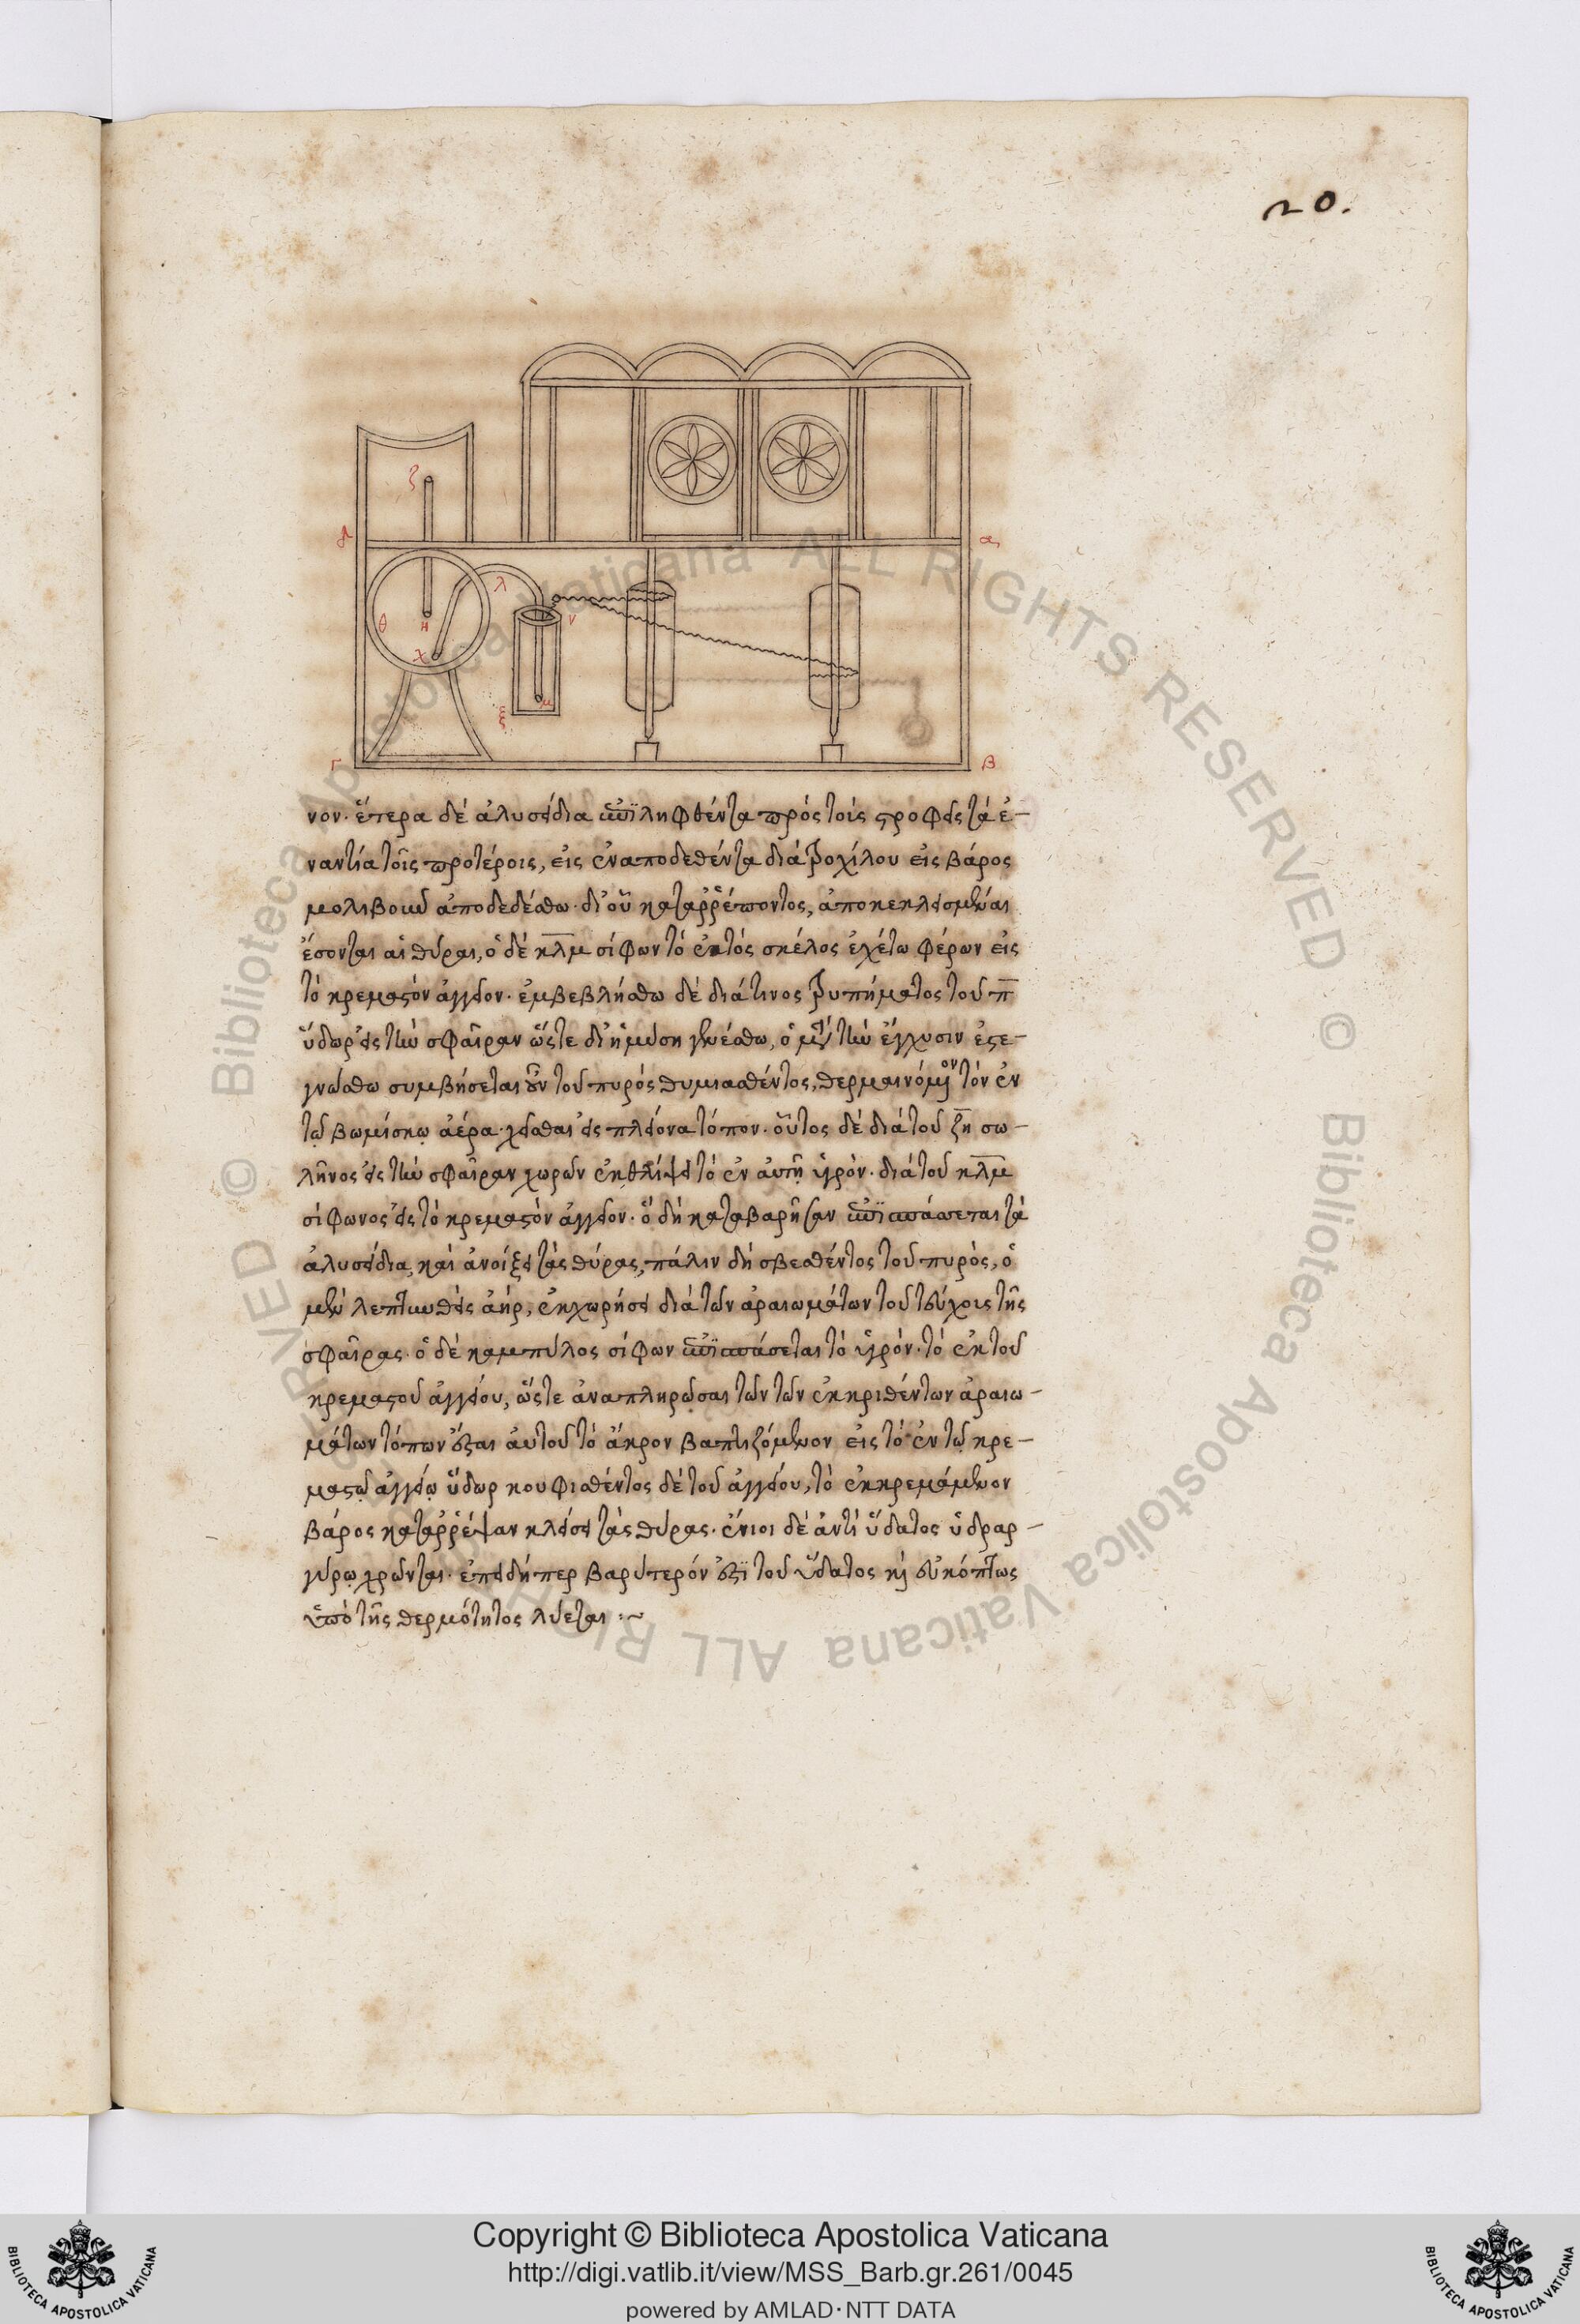 20.
ζ
Δ
α
λ
θ
η
ν
χ
μ
ξ
Γ
β
νον· ἕτερα δὲ ἁλυσείδια ἐπιληφθέντα πρὸς τοῖς στροφεῖς τὰ ἐ-
ναντία τοῖς προτέροις, εἰς ἓν ἀποδεθέντα διὰ τροχίλου εἰς βάρος
μολιβοῦν ἀποδεδέσθω· δι' οὗ καταῤῥέποντος, ἀποκεκλεισμέναι
ἔσονται αἱ θύραι, ὁ δὲ κλμ σίφων τὸ ἐκτὸς σκέλος ἐχέτω φέρων εἰς
τὸ κρεμαστὸν ἀγγεῖον· ἐμβεβλήσθω δὲ διά τινος τρυπήματος τοῦ π
ὕδωρ εἰς τὴν σφαῖραν ὥστε δι' ἡμίση γενέσθω, ὃ μετὰ τὴν ἔγχυσιν ἐστε-
γνώσθω συμβήσεται οὖν τοῦ πυρὸς θυμιασθέντος, θερμαινόμενον τὸν ἐν
τῷ βωμίσκῳ ἀέρα· χεῖσθαι εἰς πλείονα τόπον· οὗτος δὲ διὰ τοῦ ζη σω-
λῆνος εἰς τὴν σφαῖραν χωρῶν ἐκθλίψει τὸ ἐν αὐτῇ ὑγρὸν· διὰ τοῦ κλμ
σίφωνος εἰς τὸ κρεμαστὸν ἀγγεῖον· ὃ δὴ καταβαρῆσαν ἐπισπάσεται τὰ
ἁλυσείδια, καὶ ἀνοίξει τὰς θύρας, πάλιν δὴ σβεσθέντος τοῦ πυρὸς, ὁ
μὲν λεπτυνθεὶς ἀήρ, ἐκχωρήσει διὰ τῶν ἀραιωμάτων τοῦ τεύχοις τῆς
σφαῖρας· ὁ δὲ καμπύλος σίφων ἐπισπάσεται τὸ ὑγρὸν· τὸ ἐκ τοῦ
κρεμαστοῦ ἀγγείου, ὥστε ἀναπληρῶσαι τῶν τῶν ἐκκριθέντων ἀραιω-
μάτων τόπων ἔσται αὐτοῦ τὸ ἄκρον βαπτιζόμενον εἰς τὸ ἐν τῷ κρε-
μαστῷ ἀγγείῳ ὕδωρ κουφισθέντος δὲ τοῦ ἀγγείου, τὸ ἐκκρεμάμενον
βάρος καταῤῥέψαν κλείσει τὰς θύρας· ἔνιοι δὲ ἀντὶ ὕδατος ὑδραρ-
γύρῳ χρῶνται· ἐπειδήπερ βαρύτερόν ἐστι τοῦ ὕδατος καὶ εὐκόπτως
ὑπὸ τῆς θερμότητος λύεται :~
Copyright © Biblioteca Apostolica Vaticana
http://digi.vatlib.it/view/MSS_Barb.gr.261/0045
powered by AMLAD·NTT DATA
BIBLIOTECA APOSTOLICA VATICANA
BIBLIOTECA APOSTOLICA VATICANA
© Biblioteca Apostolica Vaticana ALL RIGHTS RESERVED © Biblioteca Apostolica Vaticana ALL RIGHTS RESERVED